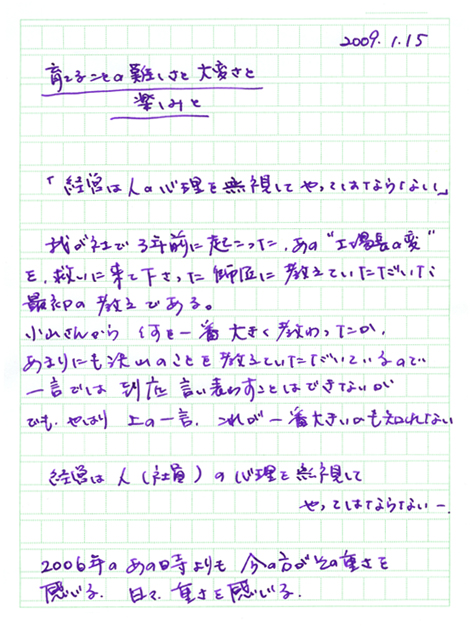 2009.1.15
育てることの難しさと大変さと
楽しみと
「経営は人の心理を無視してやってはならない」
我が社で3年前に起こった、あの"工場長の変"
を、救いに来て下さった師匠に教えていただいた
最初の教えである。
小山さんから何を一番大きく教わったか、
あまりにも沢山のことを教えていただいているので
一言では到底言い表わすことはできないが
でも、やはり上の一言、これが一番大きいかも知れない
経営は人(社員)の心理を無視して
やってはならないー。
2006年のあの時よりも今の方がその重さを
感じる。日々、重さを感じる。